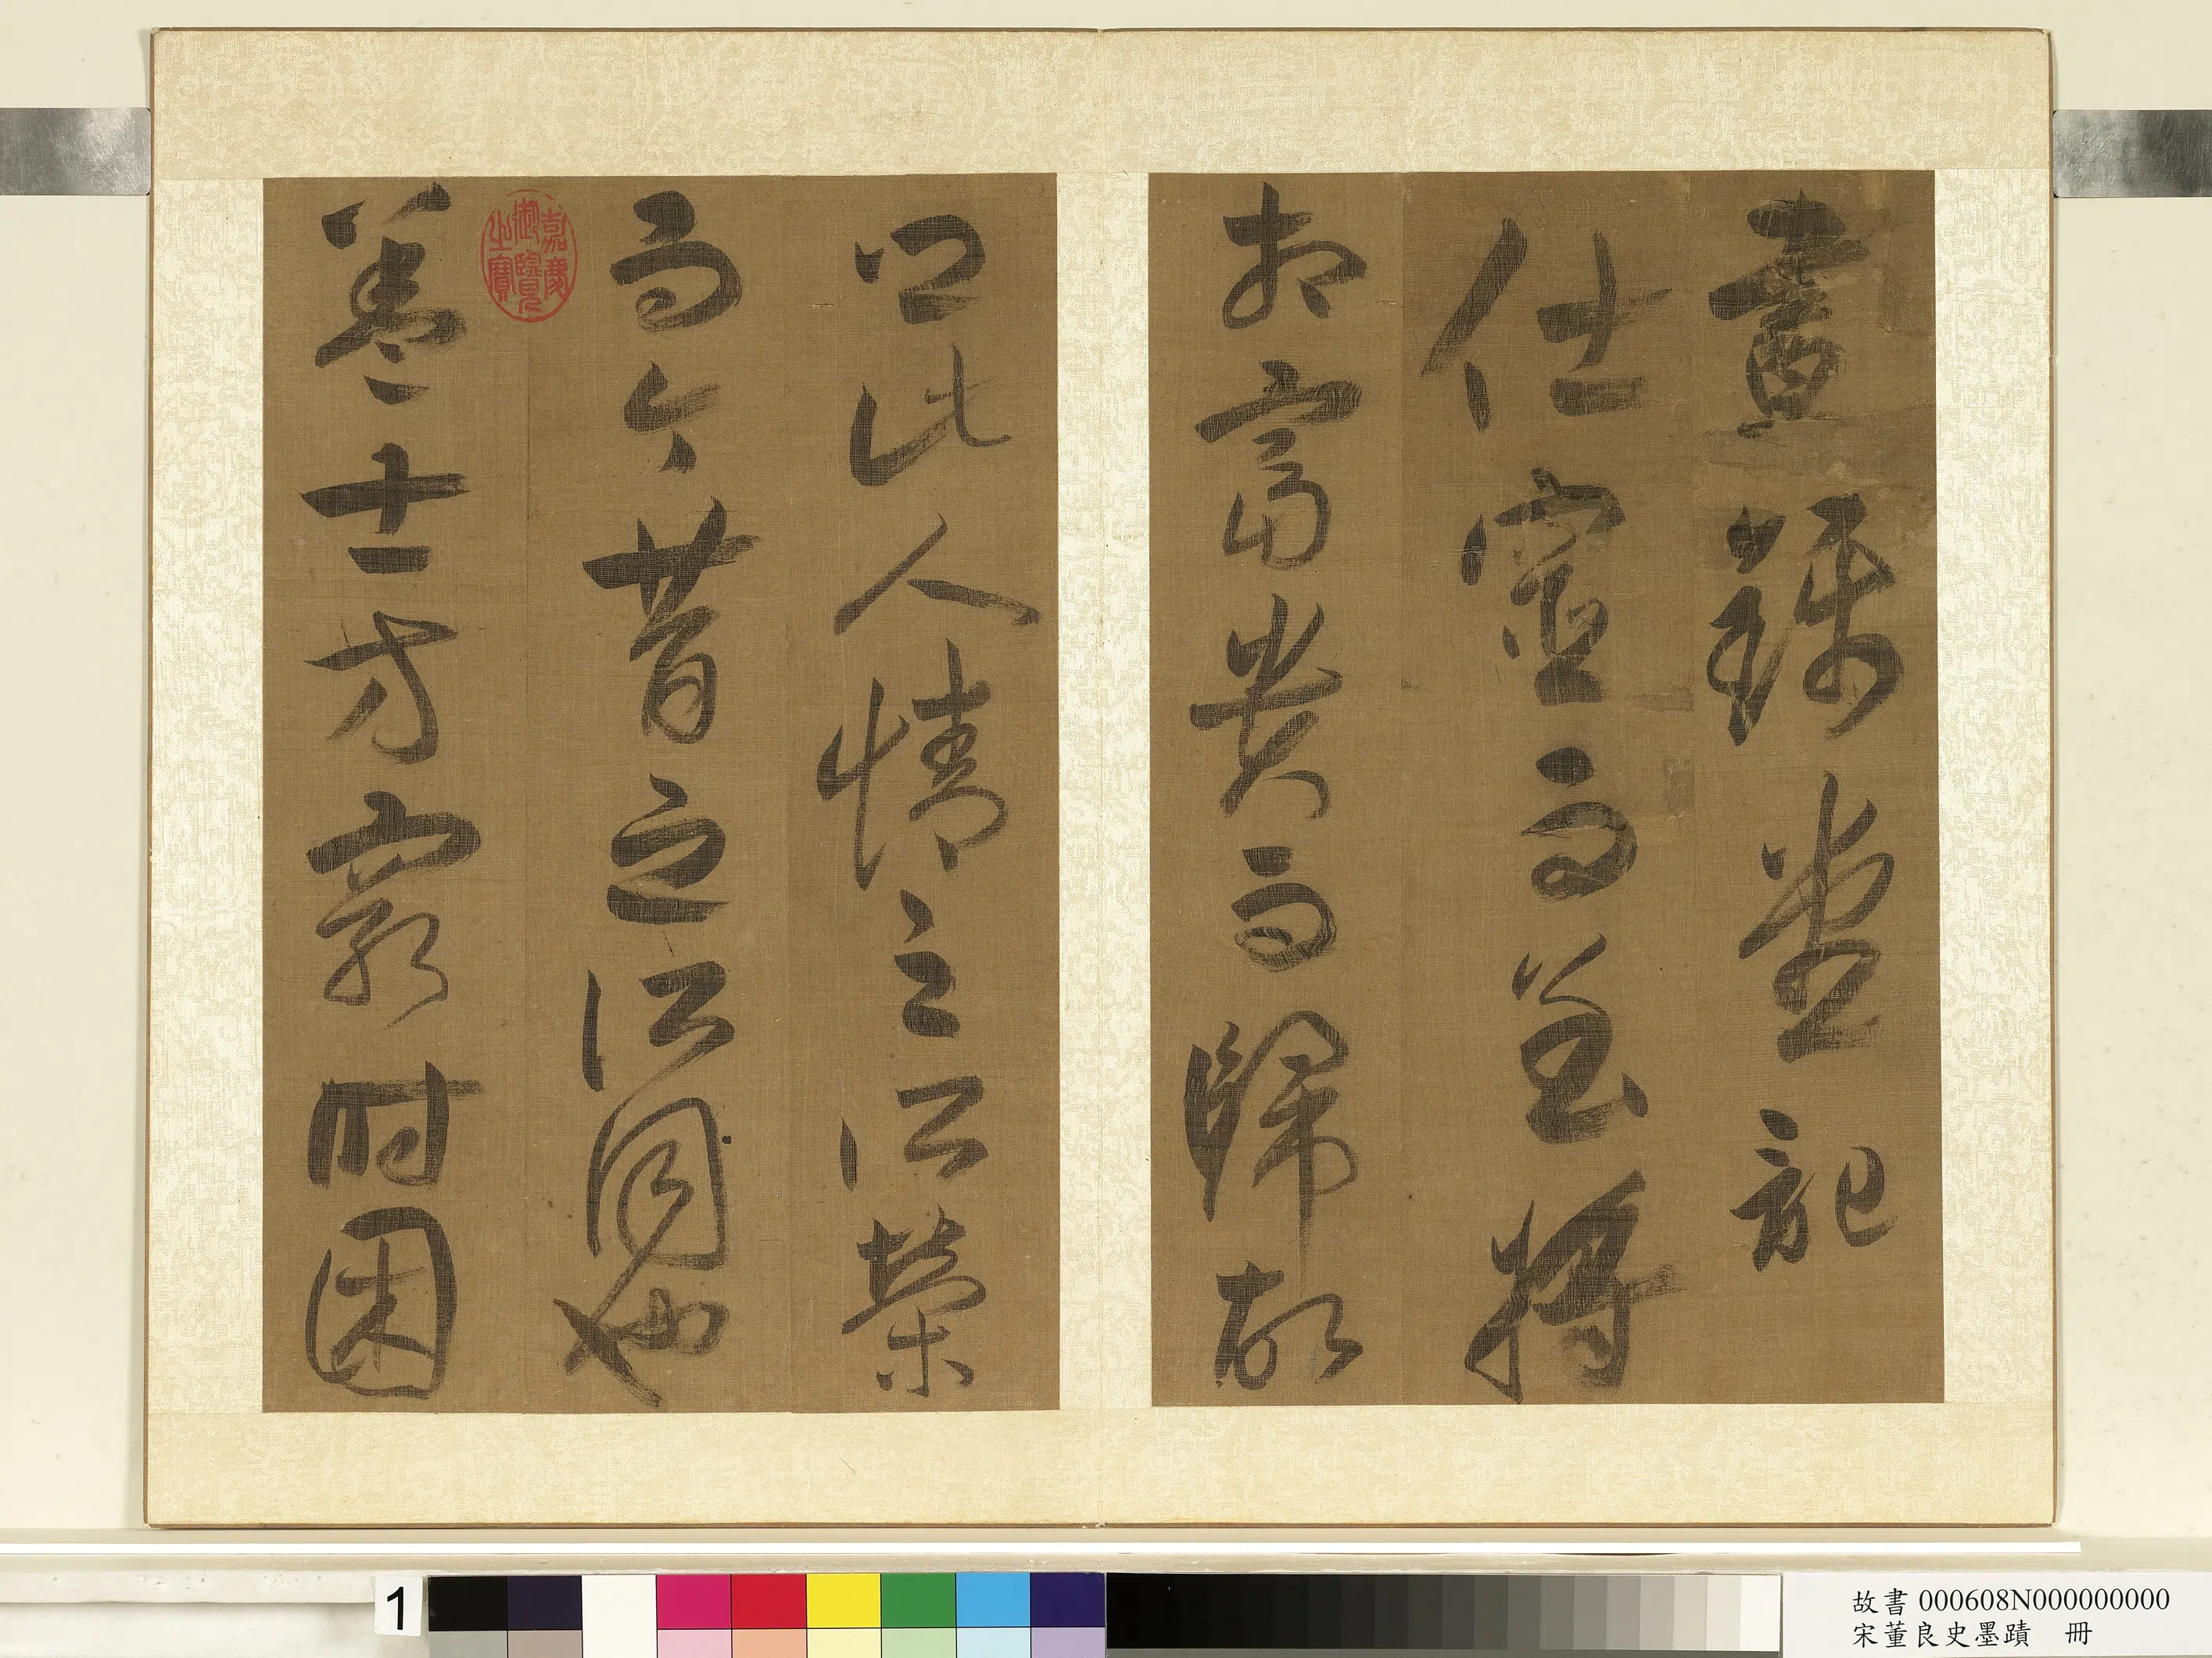 晝錦堂記
仕宦而至將
相富貴而歸故
鄉此人情之所榮
而今昔之所同也
蓋士方窮時困
嘉慶御覽之寶
1
故書 000608N000000000
宋董良史墨蹟 冊